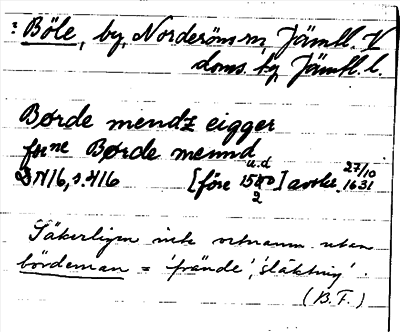 : Böle, by, Norderöns sn, Jämtl. V
doms. by, Jämtl. l.
Børde mendz eigger
forne Børde mennd
DN 16, s. 416 [före 1580 u.d 2] avskr. 27/10 1631
Säkerligen icke ortnamn utan
bördeman = 'frände', 'släkting'.
(B.F.)